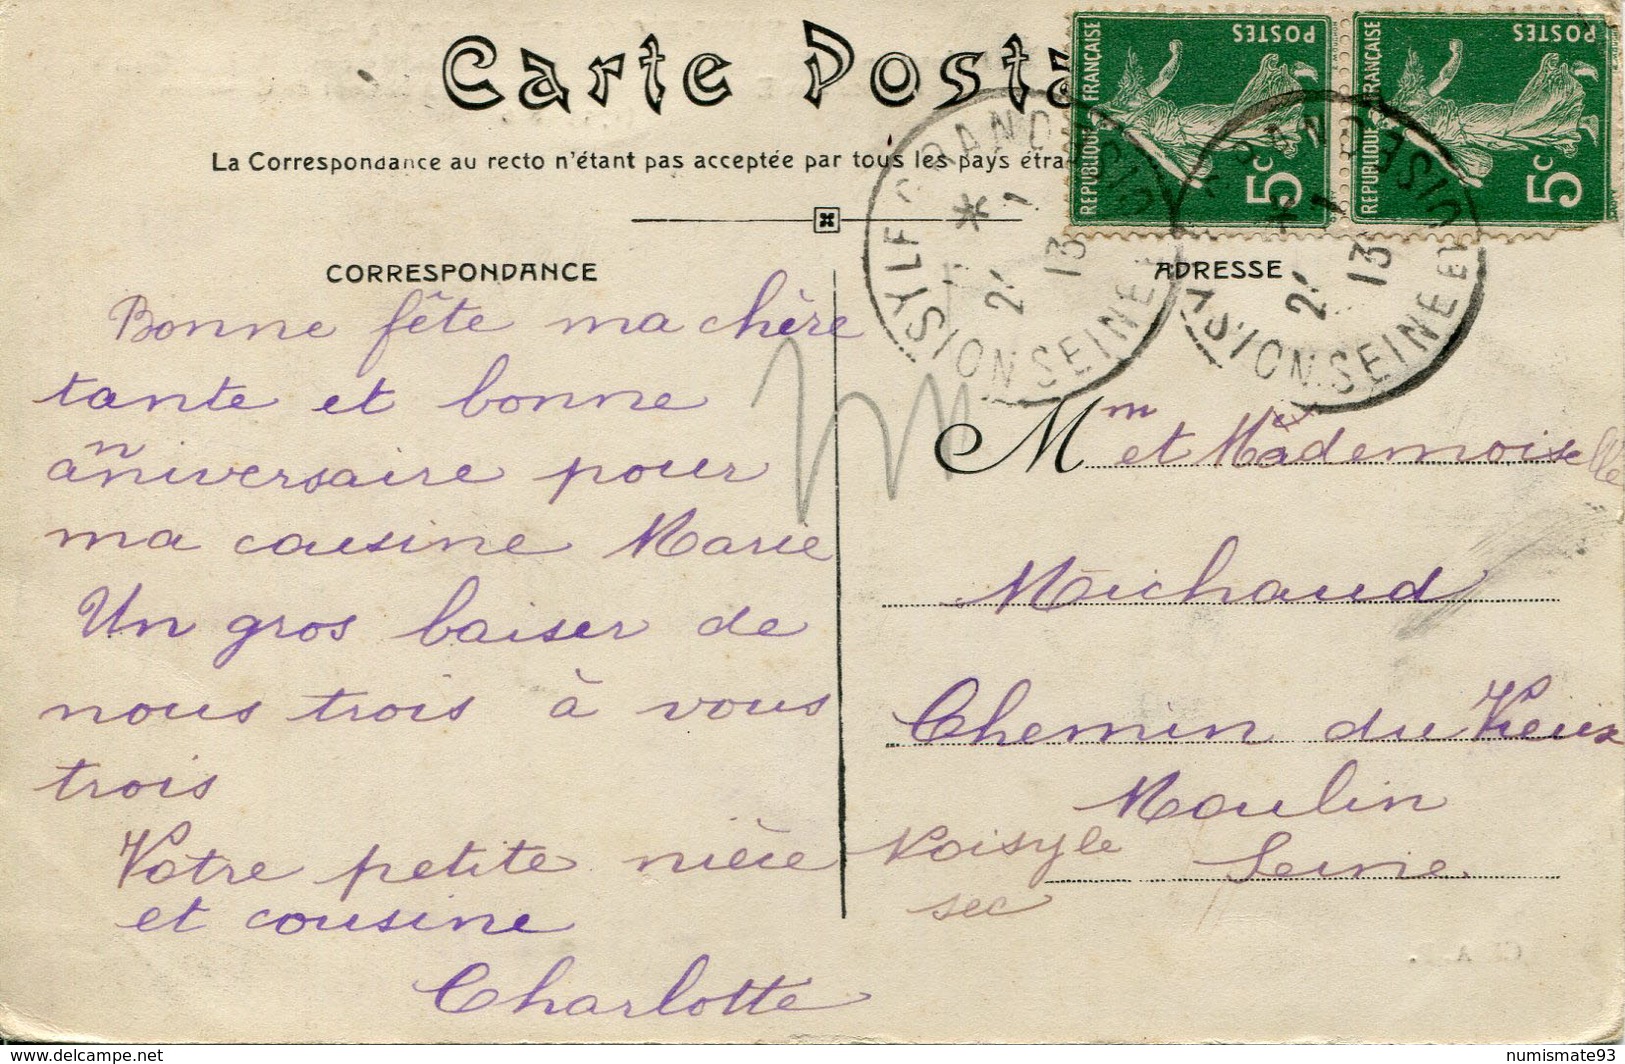 Carte Posta
La Correspondance au recto n'étant pas acceptée par tous les pays étra
REPUBLIQUE FRANÇAISE
POSTES
5c
REPUBLIQUE FRANÇAISE
POSTES
5c
NOISY LE
SEINE
2
13
SEINE
2
13
CORRESPONDANCE
Bonne fête ma chère
tante et bonne
anniversaire pour
ma cousine Marie
Un gros baiser de
nous trois à vous
trois
Votre petite nièce
et cousine
Charlotte
ADRESSE
Mm et Mademoiselle
Michaud
Chemin du Vieux
Moulin
Noisy le
sec
Seine
delcampe.net
numismate93